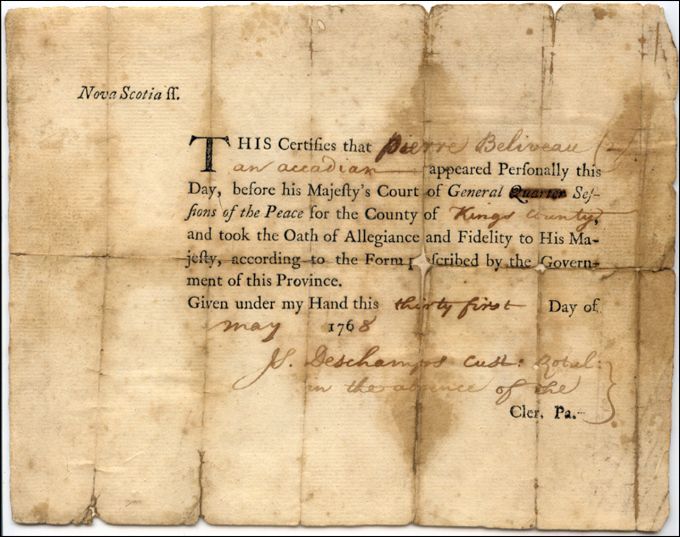 Nova Scotia ſſ.
THIS Certifies that pierre Beliveau
an accadian appeared Perſonally this
Day, before his Majeſty's Court of General Quarter Seſ-
ſions of the Peace for the County of Kings County,
and took the Oath of Allegiance and Fidelity to His Ma-
jeſty, according to the Form ſcribed by the Govern-
ment of this Province.
Given under my Hand this thirty first Day of
may 1768
Js. Deschamps Cust: Rotul:
in the absence of the
Cler. Pa.